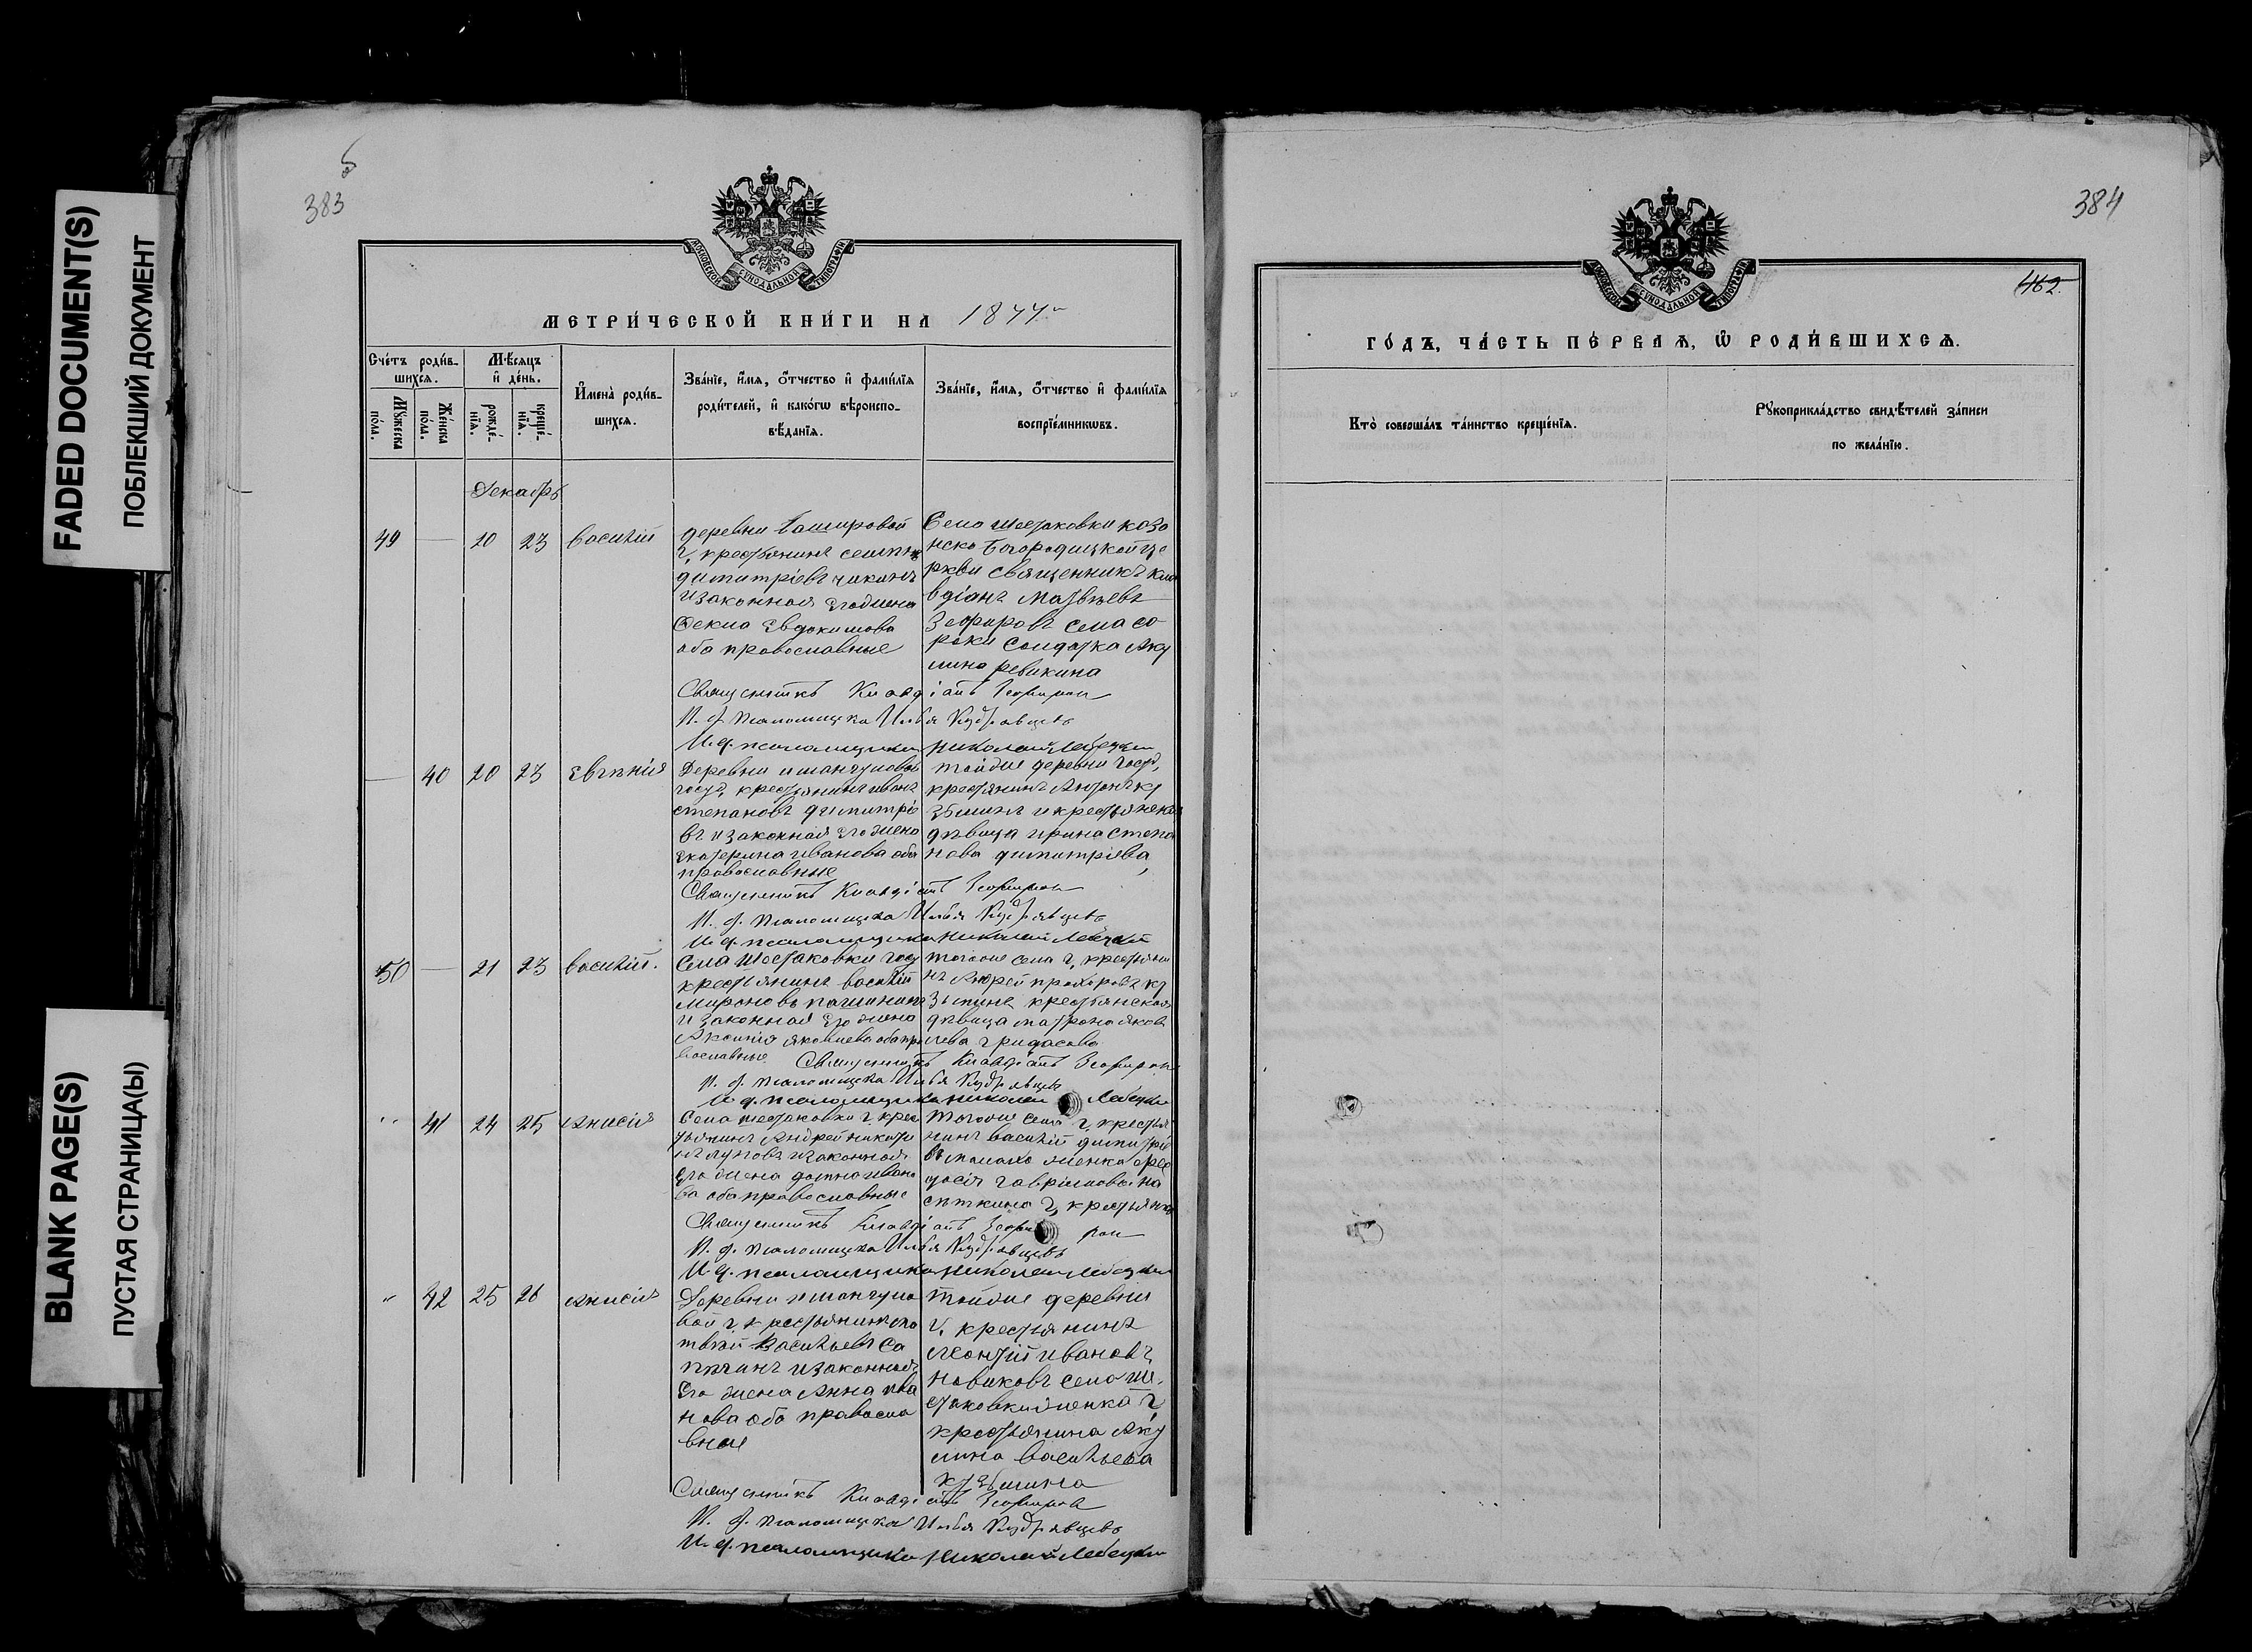 FADED DOCUMENT(S)
ПОБЛЕКШИЙ ДОКУМЕНТ
BLANK PAGE(S)
ПУСТАЯ СТРАНИЦА(Ы)
383
МОСКОВСКОЙ СУНОДАЛЬНОЙ ТИПОГРАФІИ
МЕТРИ́ЧЕСКОЙ КНИ́ГИ НА 1877
Сче́тъ роди́в-
шихсѧ.
Мѣ́сѧцъ
и҆ де́нь.
И҆мена̀ роди́в-
шихсѧ.
Зва́нїе, и҆́мѧ, ѻ҆́тчество и҆ фами́лїѧ
роди́телей, и҆ како́гѡ вѣроиспо-
вѣ́данїѧ.
Зва́нїе, и҆́мѧ, ѻ҆́тчество и҆ фами́лїѧ
воспрїе́мникѡвъ.
Мꙋ́жеска
по́ла.
Же́нска
по́ла.
рожде́-
нїѧ.
креще́-
нїѧ.
Декабрь
49 — 20 23 Василій
деревни Башировой
г. крестьянинъ
димитріевъ
и законная его жена
Фекла Евдокимова
оба православные
Села Шестаковки Каза
нско Богородицкой це
ркви священникъ Кла
вдіанъ Матвѣевъ
Зефировъ села Со
роки солдатка Аку
лина Ревякина
Священникъ Клавдіанъ Зефировъ
И. д. псаломщика Илья Кудрявцевъ
И. д. псаломщика Николай
— 40 20 23 Евгенія
Деревни
госуд. крестьянинъ Иванъ
Степановъ Димитріе
въ и законная его жена
Екатерина Иванова оба
православные
тойже деревни госуд.
крестьянинъ Антонъ Ку
зьминъ и крестьянская
дѣвица Ирина Степа
нова Димитріева,
Священникъ Клавдіанъ Зефировъ
И. д. псаломщика Илья Кудрявцевъ
И. д. псаломщика Николай
50 — 21 23 Василій.
Села Шестаковки госу
крестьянинъ Василій
Мироновъ
и законная его жена
Яковлева оба пра
вославные
тогоже села г. крестьян
нъ Андрей Прохоровъ Ку
зьминъ крестьянская
дѣвица Матрона Яков
лева Гридасова
Священникъ Клавдіанъ Зефировъ
И. д. псаломщика Илья Кудрявцевъ
И. д. псаломщика Николай
41 24 25 Анисія
Села Шестаковки г. крес
тьянинъ Андрей Никити
нъ и законная
его жена Домна Ивано
ва оба православные
тогоже села г. крестья
нинъ Василій Димитріе
въ женка Фео
досія Гавріилова
г. крестьянка
Священникъ Клавдіанъ Зефировъ
И. д. псаломщика Илья Кудрявцевъ
И. д. псаломщика Николай
42 25 26 Анисія
Деревни
вой г. крестьянинъ Ма
твѣй Васильевъ Са
и законная
его жена Анна Ива
нова оба правосла
вные
тойже деревни
г. крестьянинъ
Леонтій Ивановъ
Новиковъ села Ше
стаковки женка г.
крестьянина Аку
лина Васильева
Кузьмина
Священникъ Клавдіанъ Зефировъ
И. д. псаломщика Илья Кудрявцевъ
И. д. псаломщика Николай
384
МОСКОВСКОЙ СУНОДАЛЬНОЙ ТИПОГРАФІИ
462.
ГО́ДЪ, ЧА́СТЬ ПЕ́РВАѦ, Ѡ҆ РОДИ́ВШИХСѦ.
Кто̀ соверша́лъ та́инство креще́нїѧ.
Рꙋкоприкла́дство свидѣ́телей за́писи
по жела́нїю.